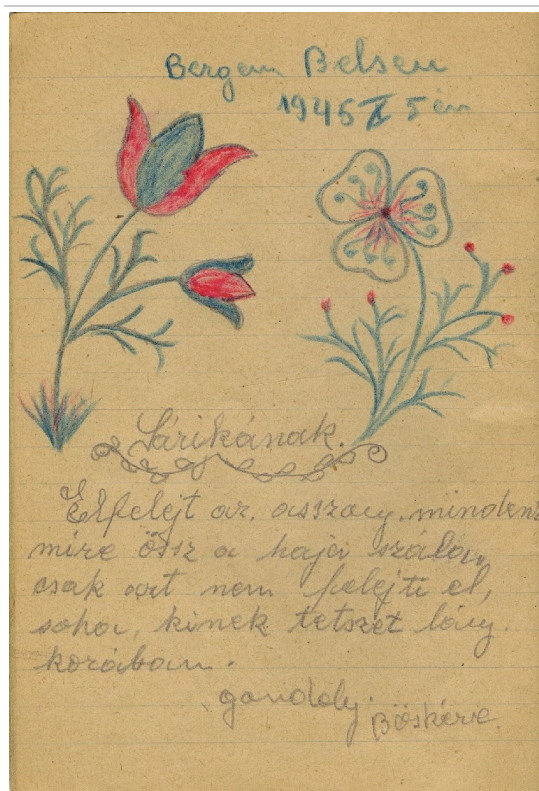 Bergen Belsen
1945 II 5 én
Sárikának.
Elfelejt az. asszony. mindent
mire ősz a haja szála,
csak azt nem felejti el,
soha, kinek tetszet lány
korában.
gondolj.
Böskére